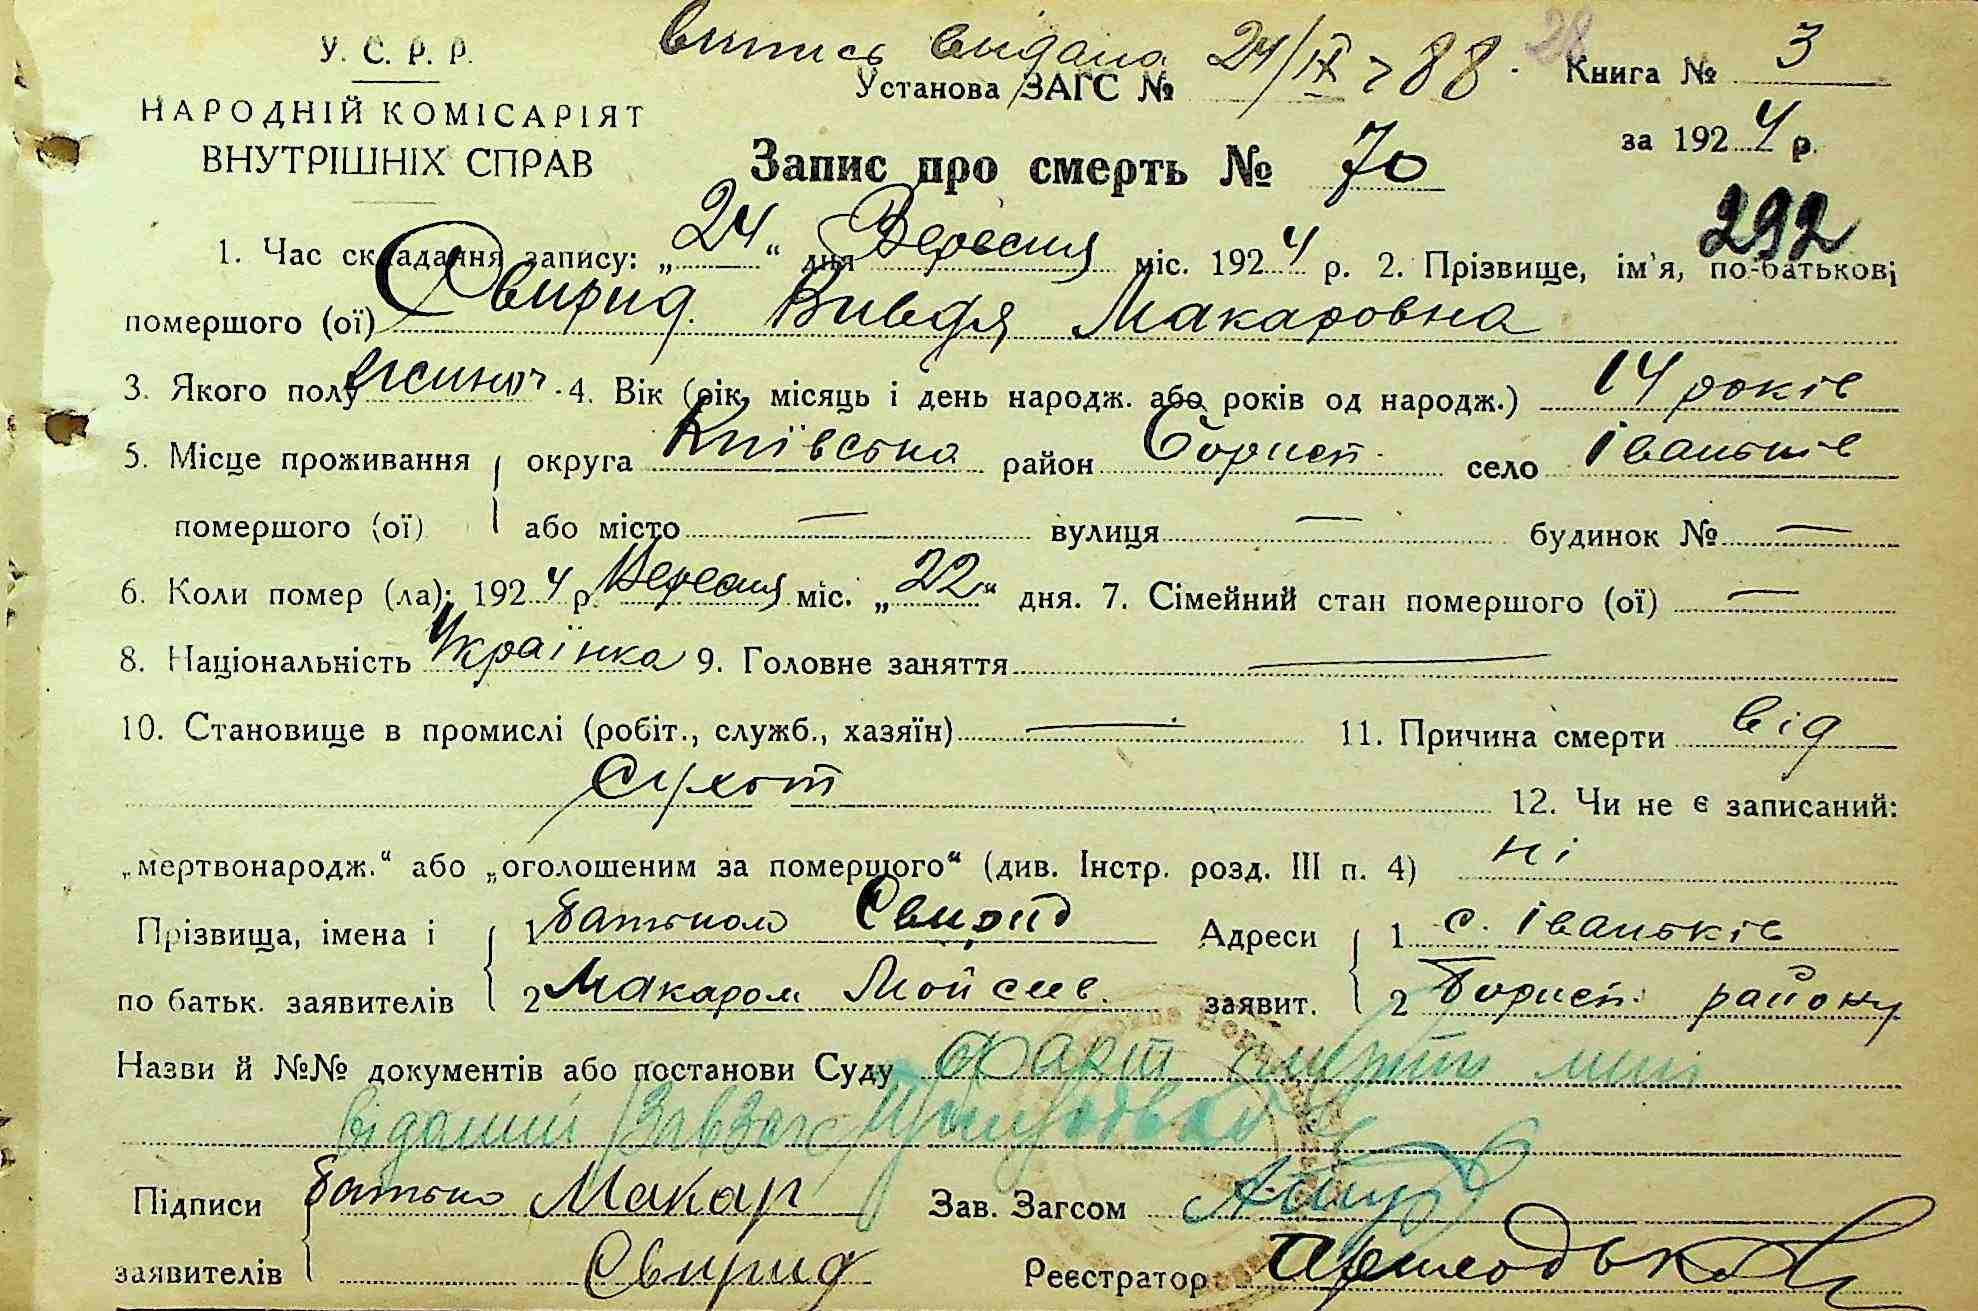 У. С. Р. Р.
випись видана 24/IX 88. 28
Установа ЗАГС №
Книга № 3
НАРОДНІЙ КОМІСАРІЯТ
ВНУТРІШНІХ СПРАВ
за 1924 р.
Запис про смерть № 70
292
1. Час складання запису: „24“ дня Вересня міс. 1924 р. 2. Прізвище, ім'я, по-батькові
помершого (ої) Свирид Вивдя Макаровна
3. Якого полу жиноч. 4. Вік (рік, місяць і день народж. або років од народж.) 14 років
5. Місце проживання округа Київська район Борисп. село Іваньків
помершого (ої) або місто — вулиця — будинок № —
6. Коли помер (ла): 1924 р. Вересня міс. „22“ дня. 7. Сімейний стан помершого (ої) —
8. Національність Українка 9. Головне заняття —
10. Становище в промислі (робіт., служб., хазяїн) — 11. Причина смерти від
сухот
12. Чи не є записаний:
„мертвонародж.“ або „оголошеним за померщого“ (див. Інстр. розд. III п. 4) ні
Прізвища, імена і 1 Батьком Свирид Адреси 1 с. Іваньків
по батьк. заявителів 2 Макаром Мойсеев. заявит. 2 Борисп. району
Назви й №№ документів або постанови Суду Факт смерти мені
відомий Завзагс
Підписи Батько Макар Зав. Загсом
заявителів Свирид Реєстратор